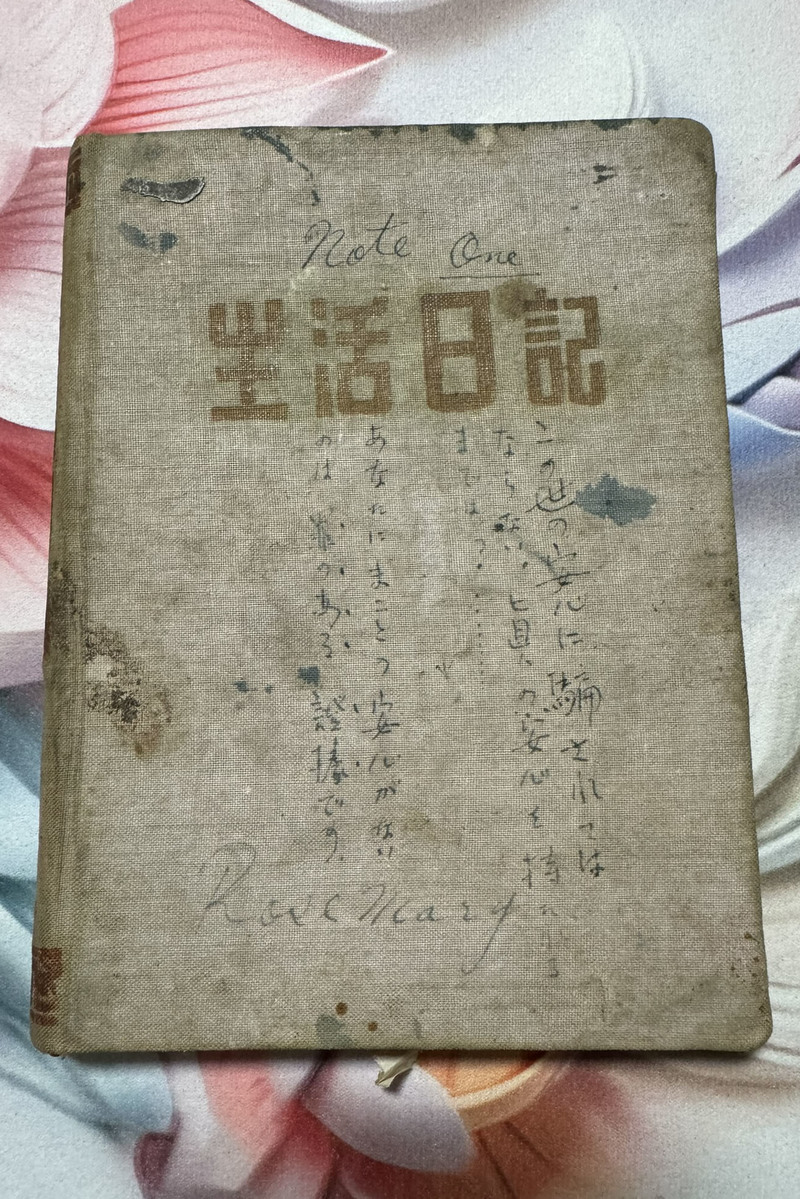 Note One
生活日記
この世の安心に騙されては
ならない、眞の安心を持たれる
までは?……
あなたにまことの安心がない
のは罪のある證據です。
Rose Mary